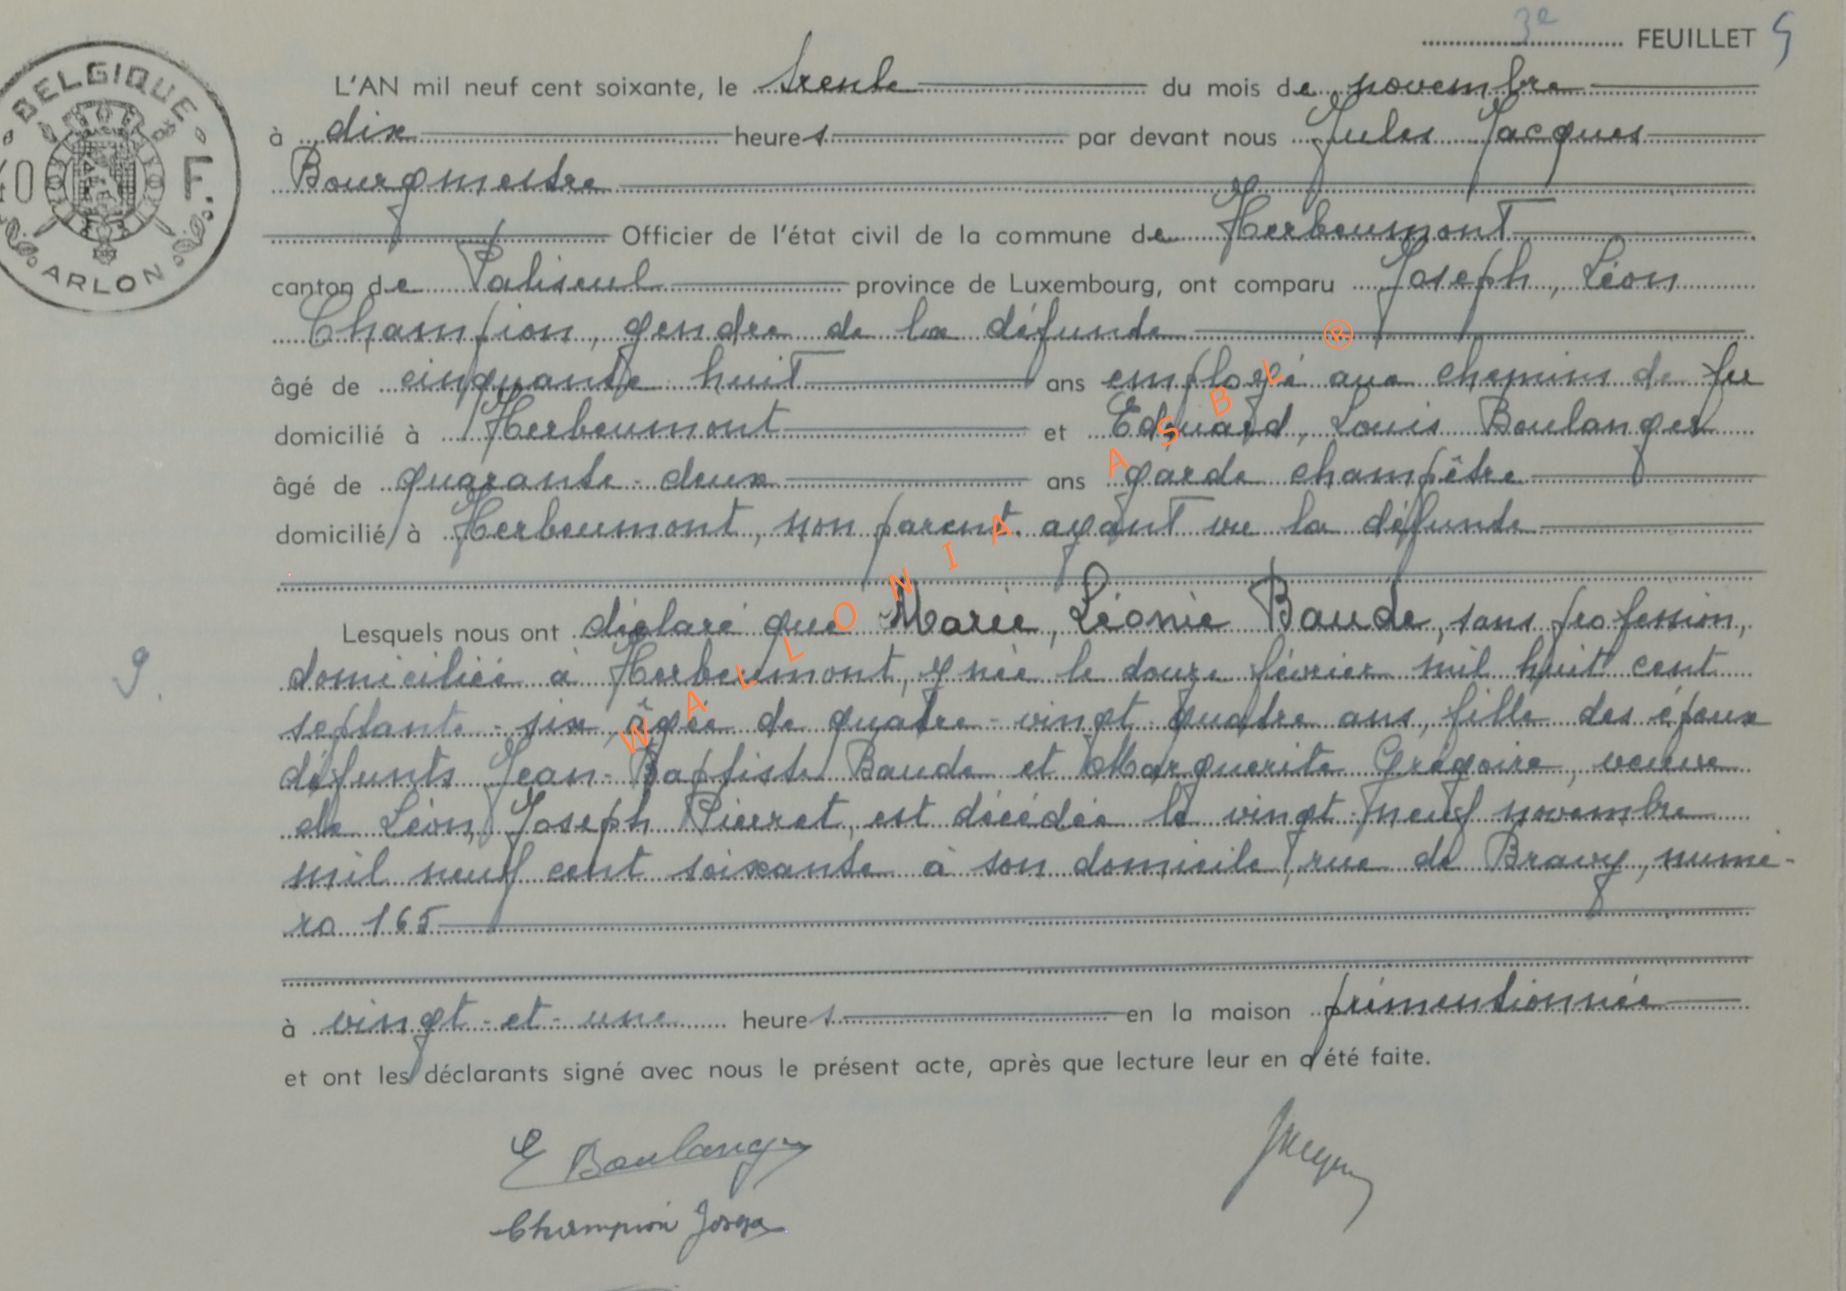 3e FEUILLET 5
BELGIQUE
40 F.
ARLON
L'AN mil neuf cent soixante, le trente du mois de novembre
à dix heures par devant nous Jules Jacques
Bourgmestre
Officier de l'état civil de la commune de Herbeumont
canton de Paliseul province de Luxembourg, ont comparu Joseph, Léon
Champion, gendre de la défunte
âgé de cinquante huit ans employé aux chemins de fer
domicilié à Herbeumont et Edouard, Louis Boulanger
âgé de quarante-deux ans garde champêtre
domicilié à Herbeumont, non parent ayant vu la défunte
Lesquels nous ont déclaré que Marie, Léonie Baude, sans profession,
9. domiciliée à Herbeumont, y née le douze février mil huit cent
septante-six, âgée de quatre-vingt-quatre ans, fille des époux
défunts Jean-Baptiste Baude et Marguerite Grégoire, veuve
de Léon, Joseph Pierret, est décédée le vingt-neuf novembre
mil neuf cent soixante à son domicile, rue de Bravy, numé-
ro 165
à vingt-et-une heures en la maison prémentionnée
et ont les déclarants signé avec nous le présent acte, après que lecture leur en a été faite.
E Boulanger
Champion Joseph
WALLONIA ASBL ®